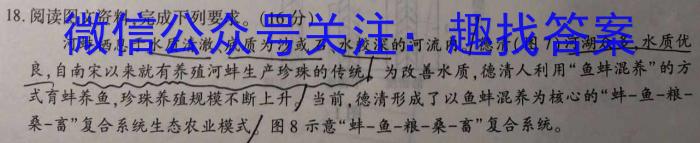 18.阅读图文资料,完成下列要求。(16分)
微信公众号关注:趣找答案
河蚌栖息于水质清澈,底质为沙或石,水较深的河流
水质优
良,自南宋以来就有养殖河蚌生产珍珠的传统。为改善水质,德清人利用“鱼蚌混养”的方
式育蚌养鱼,珍珠养殖规模不断上升。当前,德清形成了以鱼蚌混养为核心的“蚌-鱼-粮-
桑-畜”复合系统生态农业模式。图8示意“蚌-鱼-粮-桑-畜”复合系统。